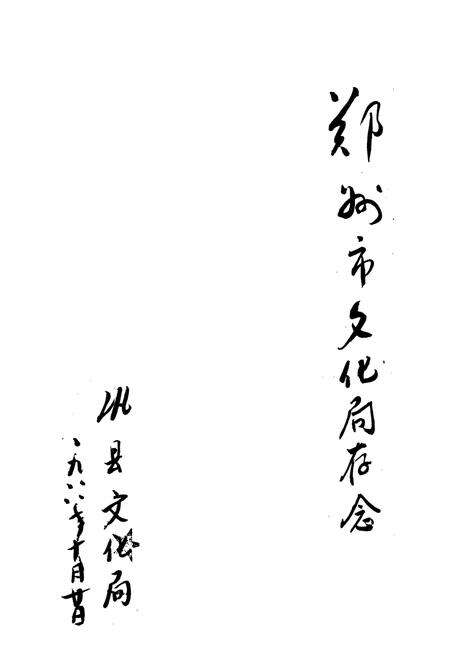 郑州市文化局存念
巩县文化局
一九八八年十月廿日